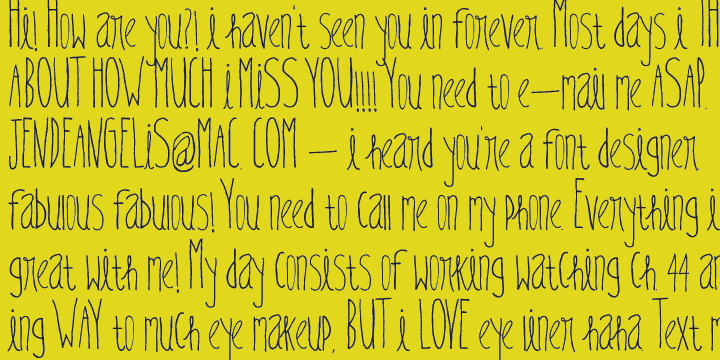 Hi! How are you?! i haven't seen you in forever. Most days i TH
ABOUT HOW MUCH i MiSS YOU!!!! You need to e-mail me ASAP.
JENDEANGELiS@MAC. COM - i heard you're a font designer
fabulous fabulous! You need to call me on my phone. Everything i
great with me! My day consists of working watching Ch. 44 an
ing WAY to much eye makeup, BUT i LOVE eye liner haha Text m